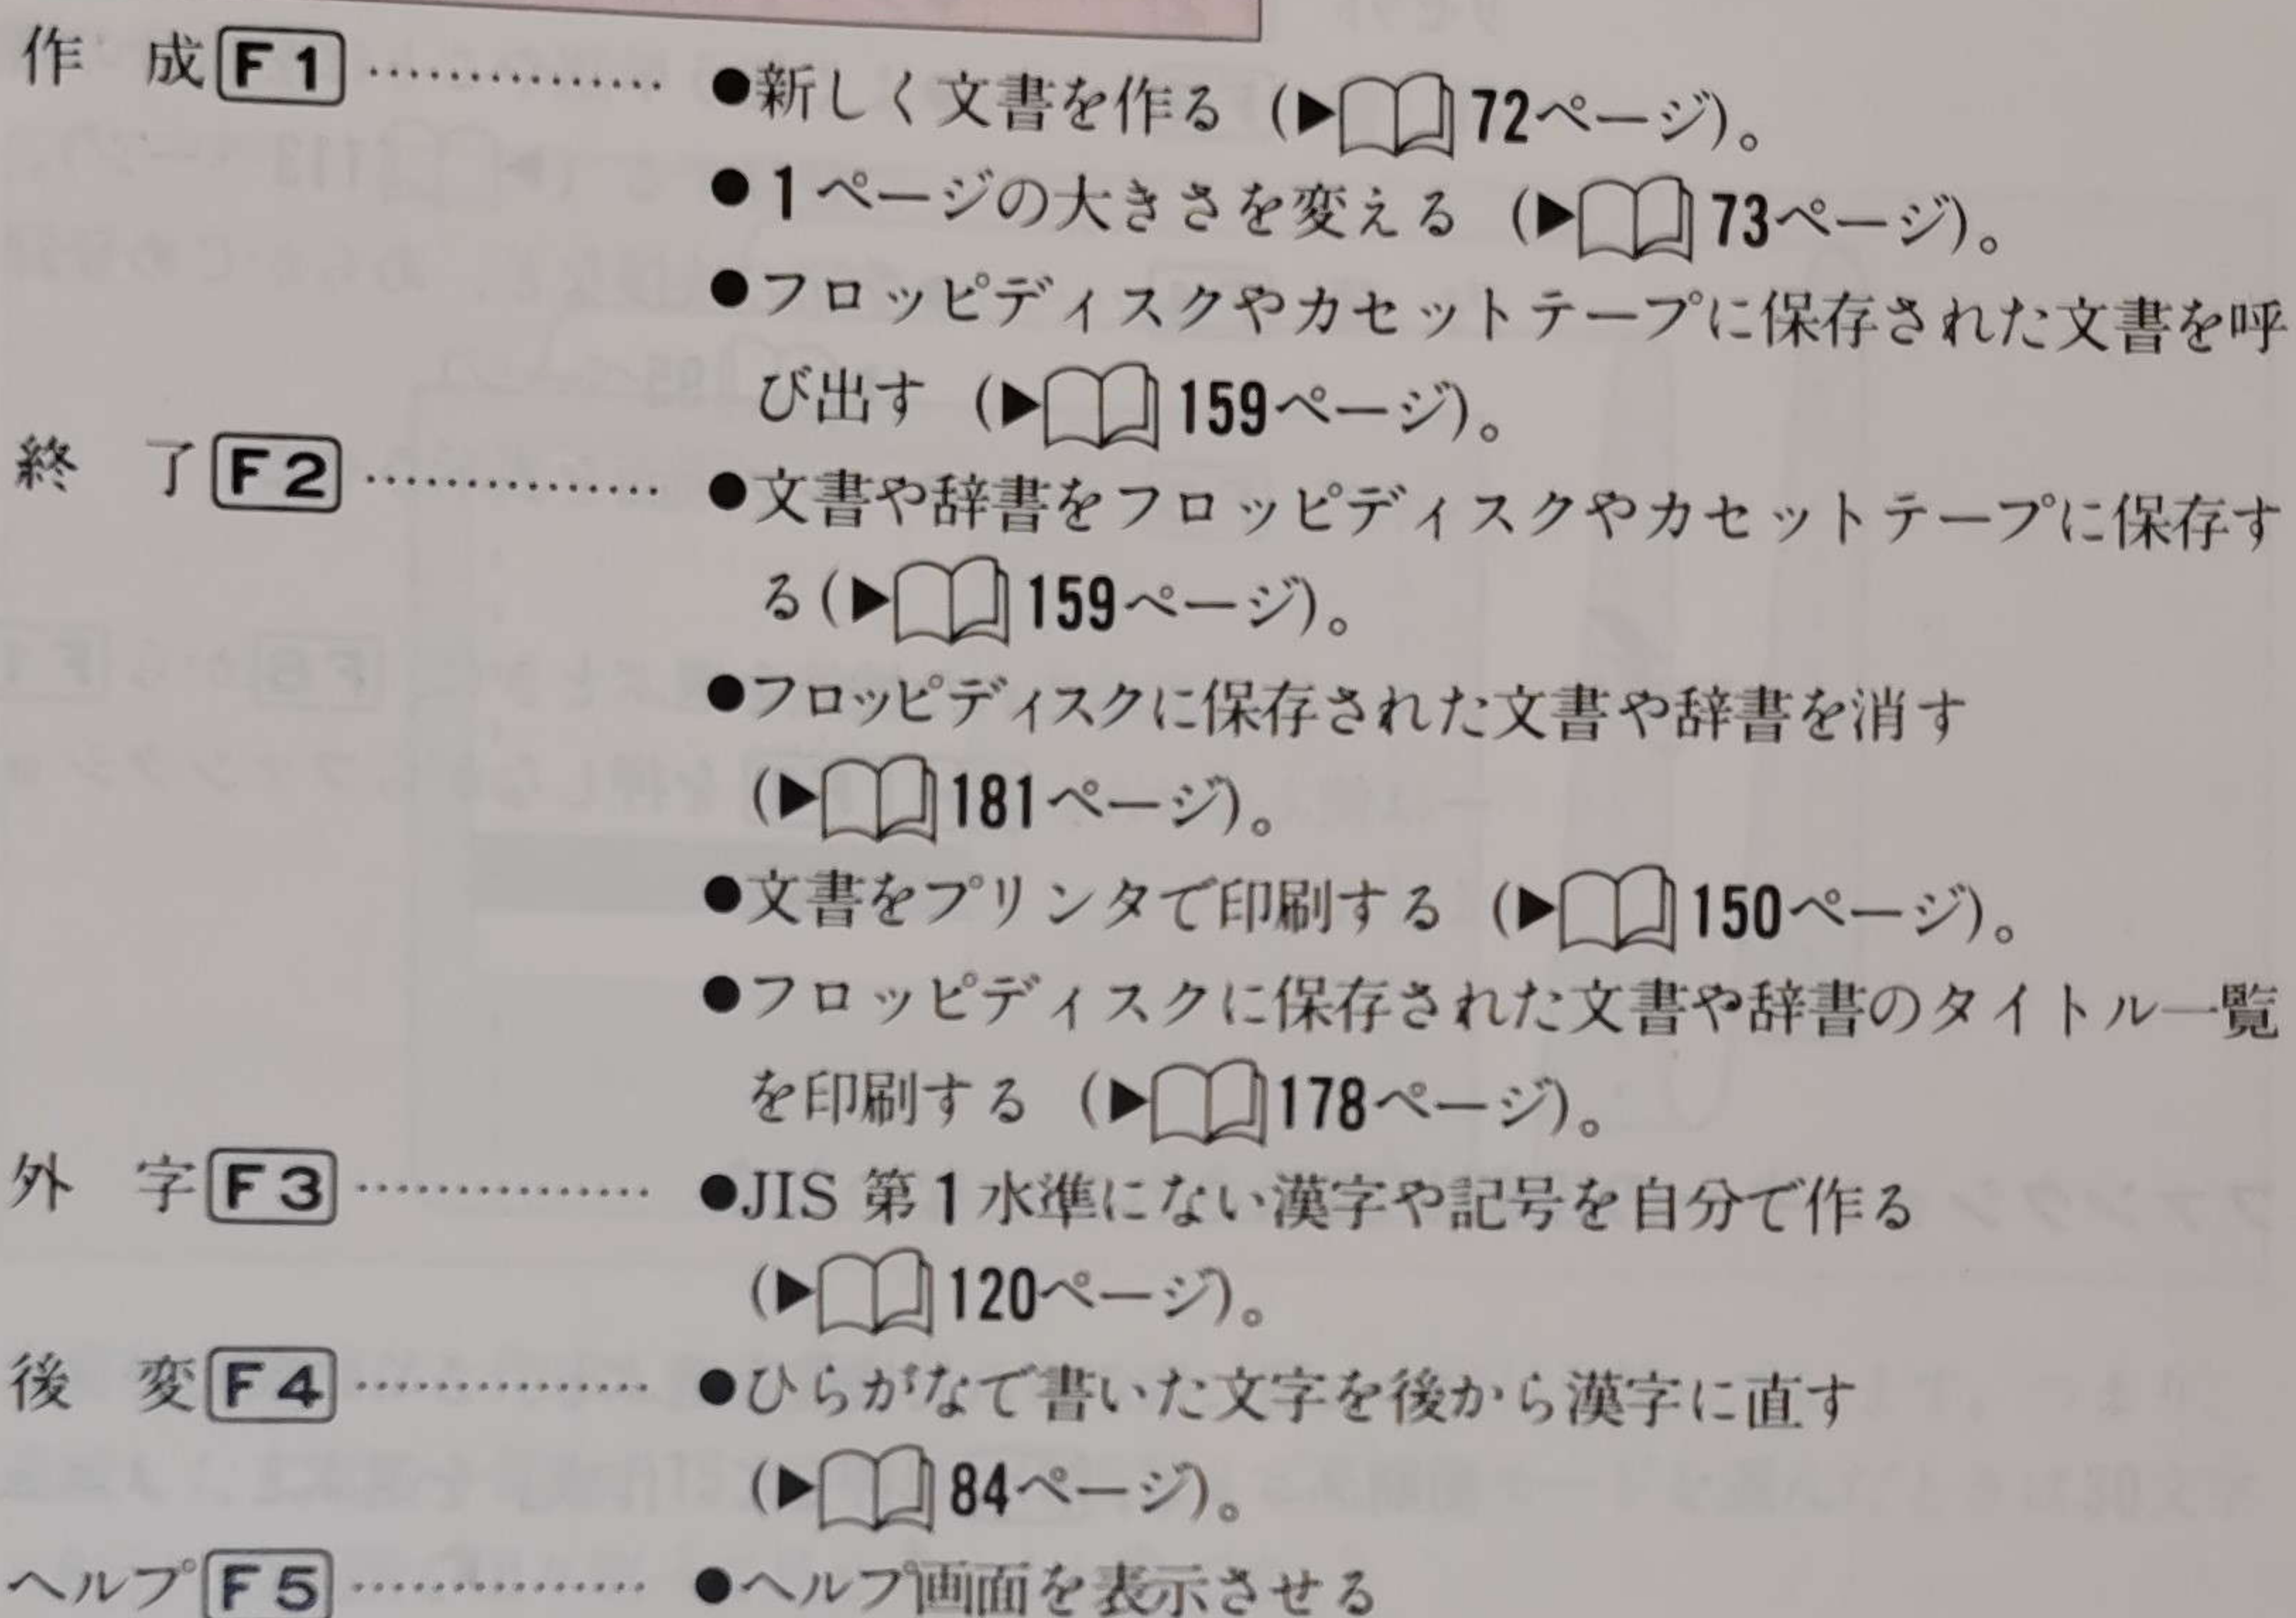 作 成 F1 …………… ●新しく文書を作る (▶72ページ)。
●1ページの大きさを変える (▶73ページ)。
●フロッピディスクやカセットテープに保存された文書を呼
び出す (▶159ページ)。
終 了 F2 …………… ●文書や辞書をフロッピディスクやカセットテープに保存す
る(▶159ページ)。
●フロッピディスクに保存された文書や辞書を消す
(▶181ページ)。
●文書をプリンタで印刷する (▶150ページ)。
●フロッピディスクに保存された文書や辞書のタイトル一覧
を印刷する (▶178ページ)。
外 字 F3 …………… ●JIS 第1水準にない漢字や記号を自分で作る
(▶120ページ)。
後 変 F4 …………… ●ひらがなで書いた文字を後から漢字に直す
(▶84ページ)。
ヘルプ F5 …………… ●ヘルプ画面を表示させる